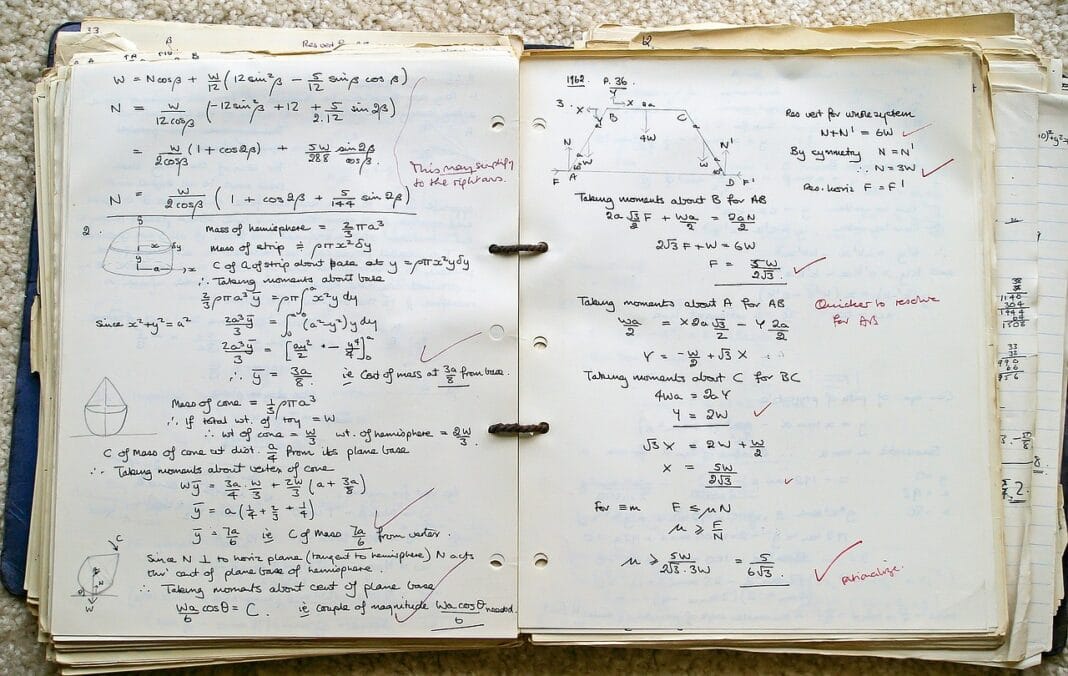 33
W = Ncosβ + W/12 (12 sin²β - 5/12 sinβ cosβ)
N = W/12cosβ (-12sin²β + 12 + 5/2.12 sin 2β)
= W/2cosβ (1 + cos2β) + 5W/288 sin2β/cosβ.
This may simplify
to the right ans.
N = W/2cosβ (1 + cos2β + 5/144 sin 2β)
2.
Mass of hemisphere = 2/3 πa³
Mass of strip ≑ ρπx²δy
C of M of strip about base at y = ρπx²yδy
∴ Taking moments about base
2/3 ρπa³ȳ = ρπ∫x²y dy
Since x²+y²=a² 2a³ȳ/3 = ∫₀ᵃ (a²-y²)y dy
2a³ȳ/3 = [a²y²/2 - y⁴/4]₀ᵃ
∴ ȳ = 3a/8. ie Cent of mass at 3a/8 from base.
Mass of cone = 1/3 ρπa³
∴ If total wt. of toy = W
∴ wt of cone = W/3 wt. of hemisphere = 2W/3.
C of Mass of cone at dist. a/4 from its plane base
∴ Taking moments about vertex of cone
Wȳ = 3a/4 . W/3 + 2W/3 (a + 3a/8)
ȳ = a(1/4 + 2/3 + 1/4)
ȳ = 7a/6 ie C of Mass 7a/6 from vertex.
C
N
W
Since N ⊥ to horiz plane (tangent to hemisphere) N acts
thro' cent of plane base of hemisphere.
∴ Taking moments about cent of plane base
Wa/6 cosθ = C. ie couple of magnitude Wa cosθ/6 needed.
1962. P. 36
3.
Y
X
X
2a
B
C
4W
N
N'
W
W
F
A
D
F'
Res vert for whole system
N+N' = 6W
By symmetry N = N'
∴ N = 3W
Res. horiz F = F'
Taking moments about B for AB
2a √3/2 F + Wa/2 = 2aN/2
2√3 F + W = 6W
F = 5W/2√3
Taking moments about A for AB
Quicker to resolve
for AB
Wa/2 = X 2a √3/2 - Y 2a/2
Y = -W/2 + √3 X
Taking moments about C for BC
4Wa = 2aY
Y = 2W
√3 X = 2W + W/2
X = 5W/2√3
For ≡m F ≤ μN
μ ≥ F/N
μ ≥ 5W/2√3.3W = 5/6√3.
rationalize.
1140
304
1444
64
1508
33
990
66